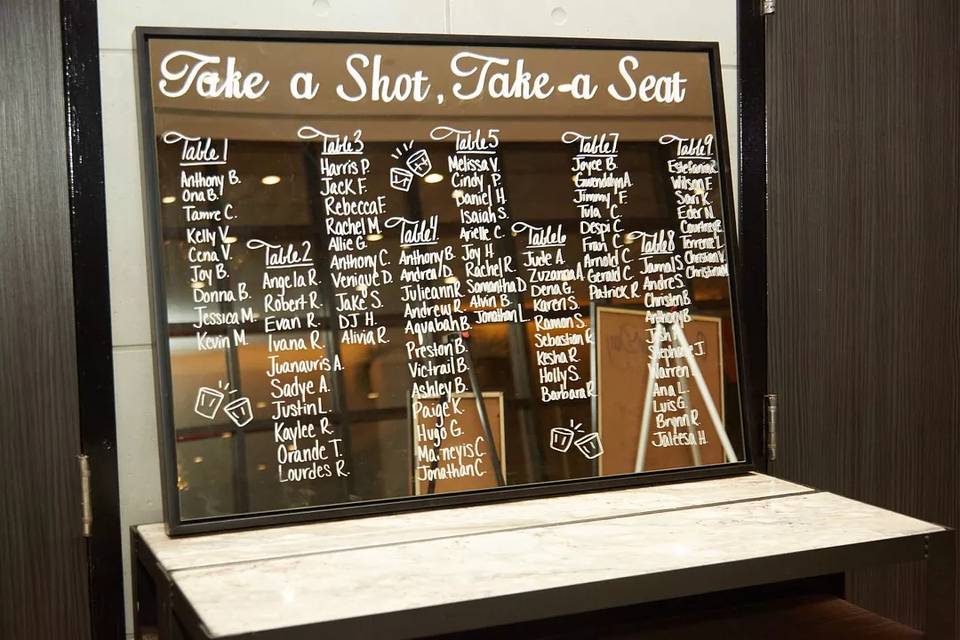 Take a Shot, Take-a Seat
Table 1
Anthony B.
Ona B.
Tamre C.
Kelly V.
Cena V.
Joy B.
Donna B.
Jessica M.
Kevin M.
Table 2
Angela R.
Robert R.
Evan R.
Ivana R.
Juanauris A.
Sadye A.
Justin L.
Kaylee R.
Orande T.
Lourdes R.
Table 3
Harris P.
Jack F.
Rebecca F.
Rachel M.
Allie G.
Anthony C.
Venique D.
Jake S.
DJ H.
Alivia R.
Table 4
Anthony B.
Andrea D.
Julieann R.
Andrew R.
Aquabah B.
Preston B.
Victrail B.
Ashley B.
Paige K.
Hugo G.
Marneyis C.
Jonathan C.
Table 5
Melissa V.
Cindy P.
Daniel H.
Isaiah S.
Arielle C.
Joy H.
Rachel R.
Samantha D.
Alvin B.
Jonathan L.
Table 6
Jude A.
Zuzanna A.
Dena G.
Karen S.
Ramon S.
Sebastian R.
Kesha R.
Holly S.
Barbara R.
Table 7
Joyce B.
Gwendolyn A.
Jimmy F.
Tula C.
Despi C.
Fran C.
Arnold C.
Gerald C.
Patrick R.
Table 8
Jamal S.
Andre S.
Christen B.
Anthony B.
Josh
Stephanie J.
Warren
Ana L.
Luis G.
Brynn R.
Jaleesa H.
Table 9
Estefania R.
Wilson F.
Sari K.
Eder N.
Courtney
Terrence L.
Christian V.
Christina